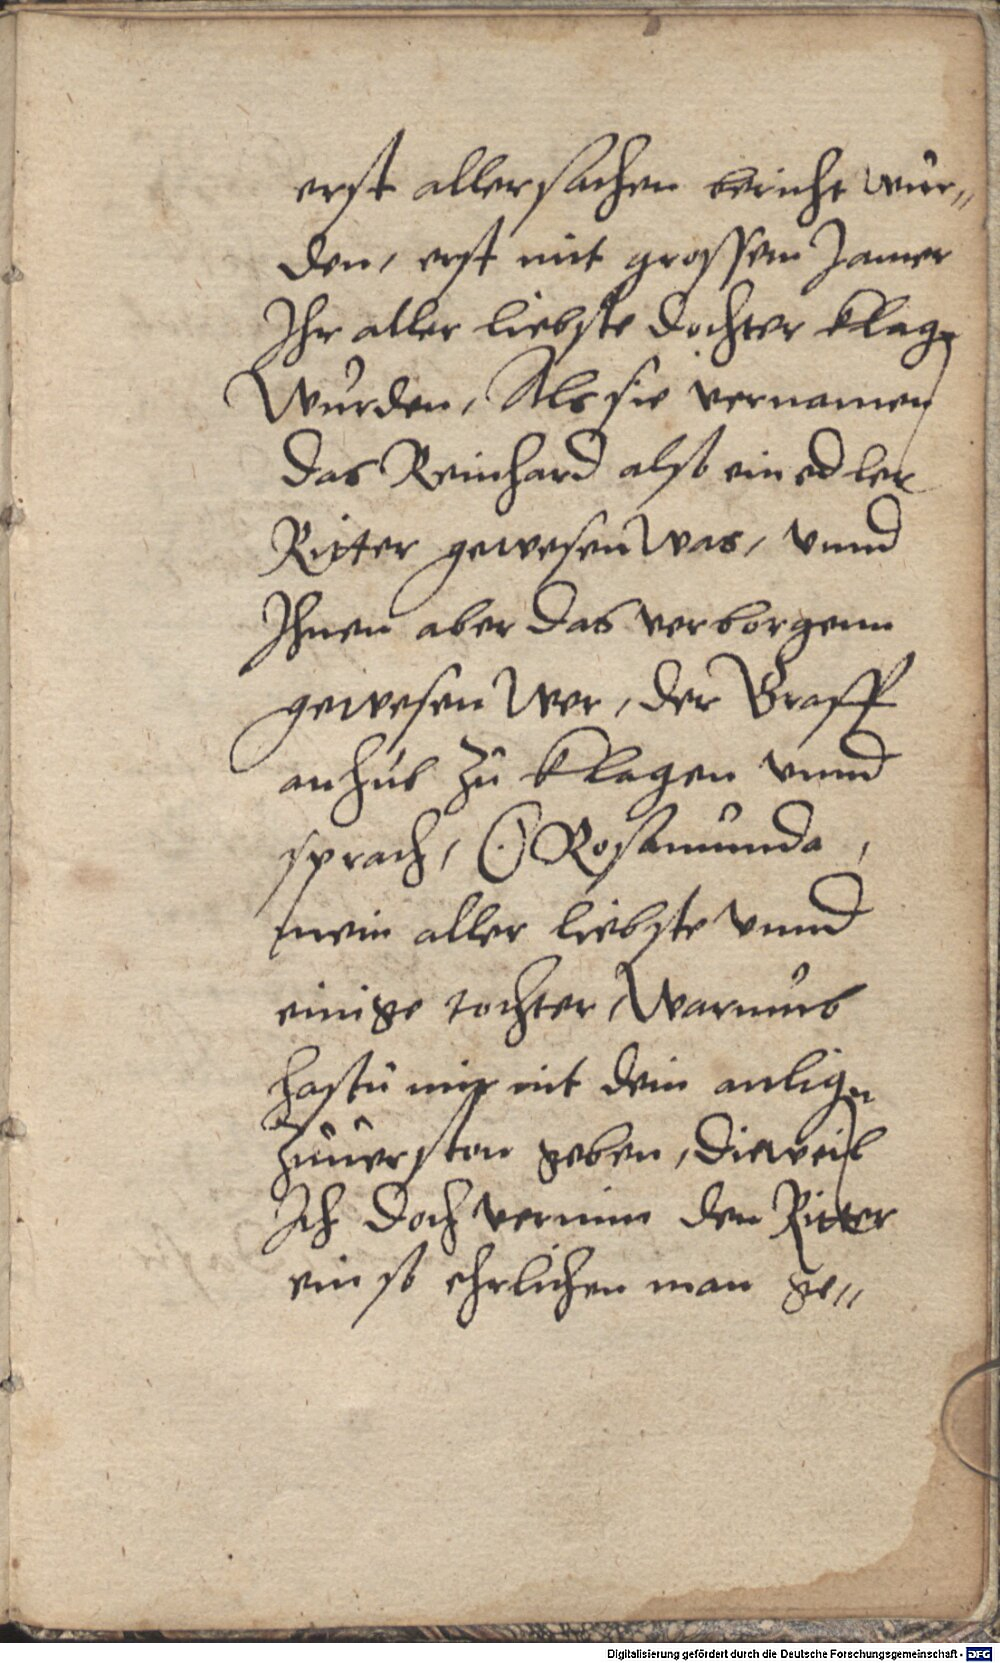 erst aller sachen bericht wur„
den, erst mit grossem Jamer
Ihr aller liebste dochter klagen
wurden, Als sie vernamen
das Reinhard also ein edler
Ritter gewesen was, vnnd
Ihnen aber das verborgenn
gewesen wer, der Graff
anhub zu klagen vnnd
sprach, O Rosamunda,
mein aller liebste vnnd
einige tochter, warumb
hastu mir nit dein anligen
zuuerston geben, dieweil
Ich doch vernim den Ritter
ein so ehrlichen man ge„
Digitalisierung gefördert durch die Deutsche Forschungsgemeinschaft - DFG